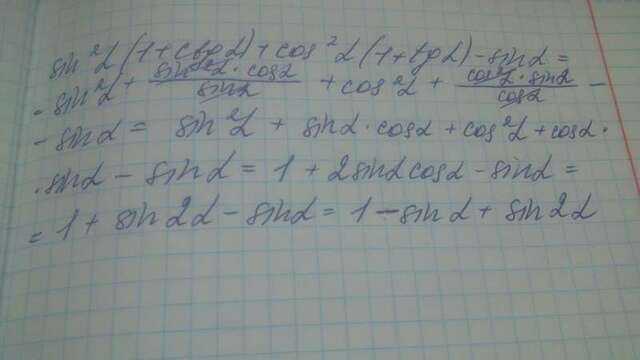 sin²α(1+ctgα)+cos²α(1+tgα)-sinα=
=sin²α + sin²α·cosα/sinα + cos²α + cos²α·sinα/cosα -
-sinα = sin²α + sinα·cosα + cos²α + cosα·
·sinα - sinα = 1 + 2sinαcosα - sinα =
= 1 + sin2α - sinα = 1 - sinα + sin2α